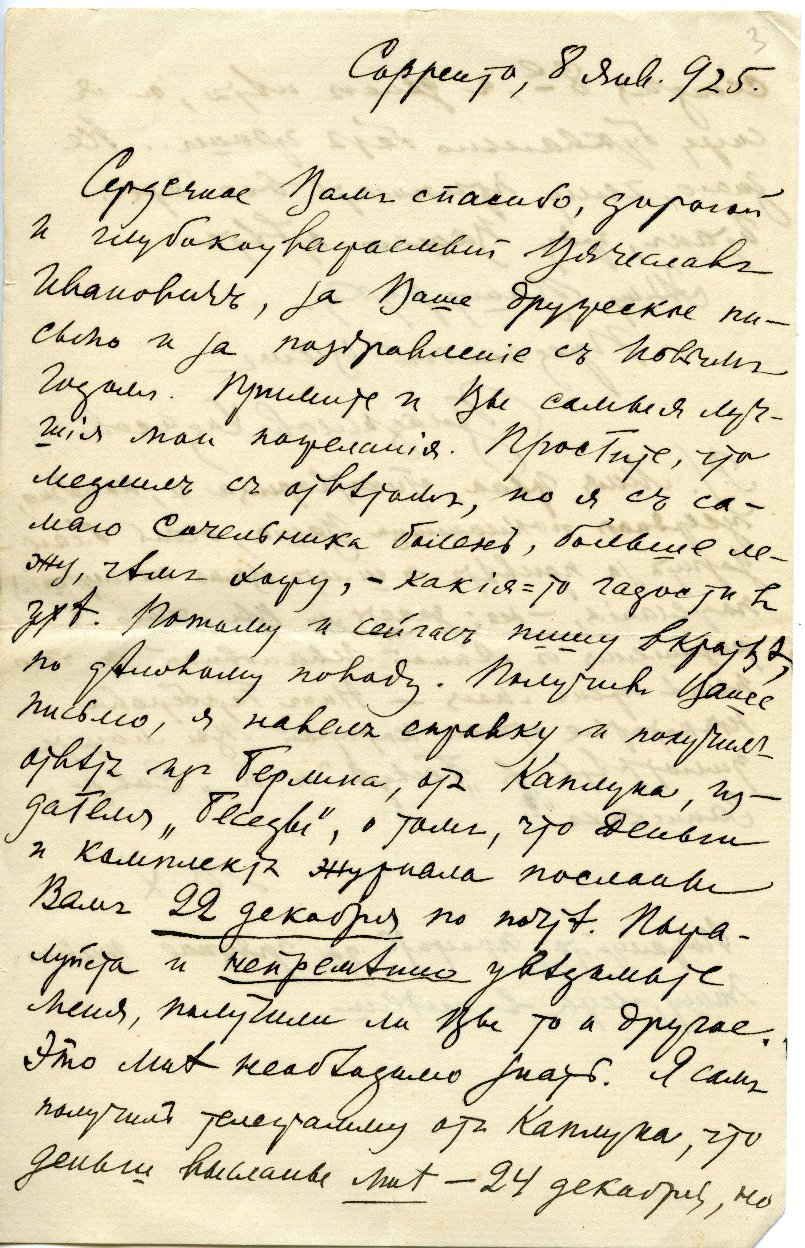 3
Сорренто, 8 янв. 925.
Сердечное Вамъ спасибо, дорогой
и глубокоуважаемый Вячеславъ
Ивановичъ, за Ваше дружеское пи-
сьмо и за поздравленіе съ Новымъ
Годомъ. Примите и Вы самыя луч-
шія мои пожеланія. Простите, что
медлилъ съ отвѣтомъ, но я съ са-
маго Сочельника боленъ, больше ле-
жу, чѣмъ хожу, – какія=то гадости въ
ухѣ. Потому и сейчасъ пишу вкратцѣ,
по дѣловому поводу. Получивъ Ваше
письмо, я навелъ справку и получилъ
отвѣтъ изъ Берлина, отъ Каплуна, из-
дателя „Бесѣды“, о томъ, что деньги
и комплектъ журнала посланы
Вамъ 22 декабря по почтѣ. Пожа-
луйста и непремѣнно увѣдомьте
меня, получили ли Вы то и другое.
Это мнѣ необходимо знать. Я самъ
получилъ телеграмму отъ Каплуна, что
деньги высланы мнѣ – 24 декабря, но